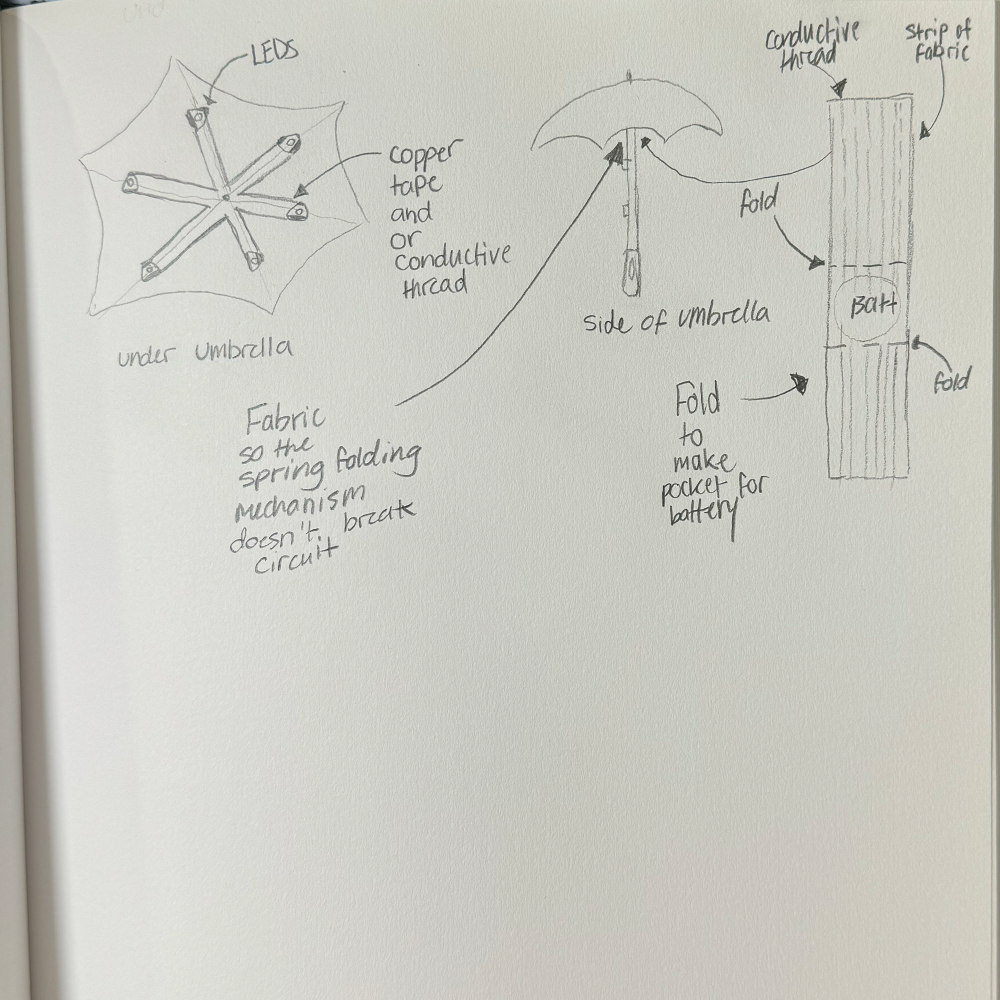 LEDS
copper
tape
and
or
conductive
thread
under umbrella
Fabric
so the
spring folding
mechanism
doesn't break
circuit
side of umbrella
conductive
thread
strip of
fabric
fold
Batt
fold
Fold
to
make
pocket for
battery